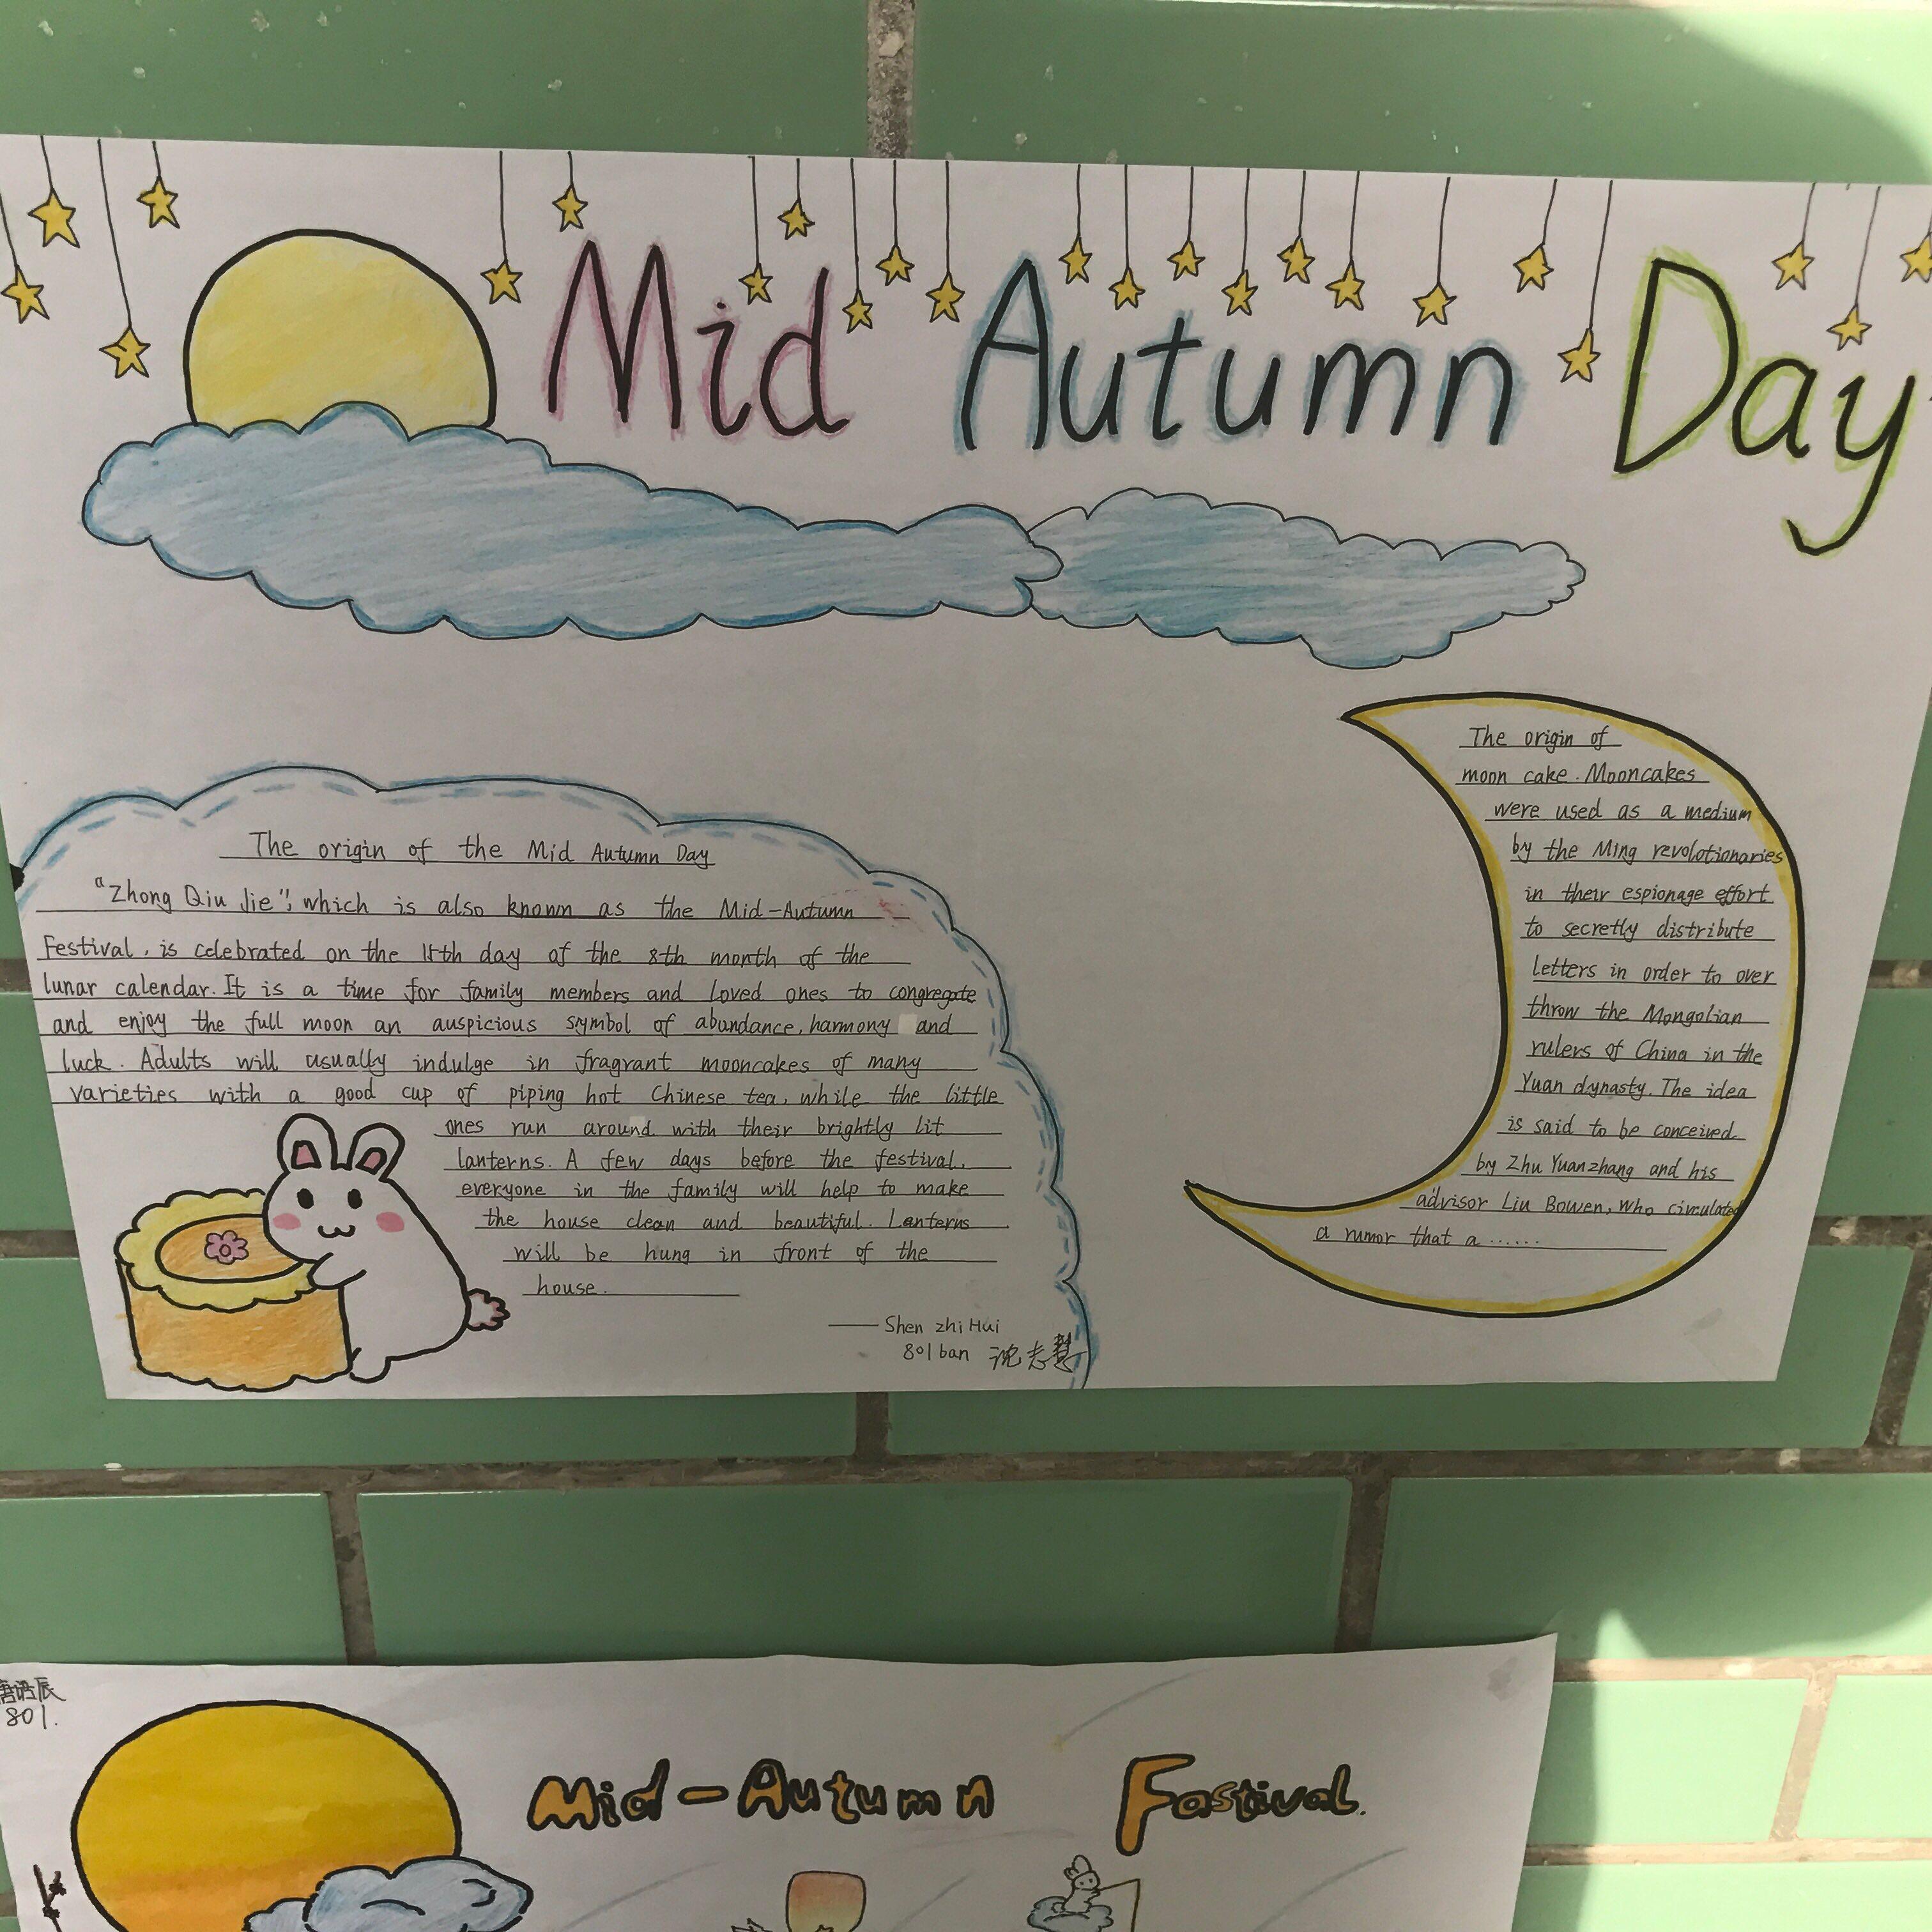 Mid Autumn Day
The origin of the Mid Autumn Day
"Zhong Qiu Jie", which is also known as the Mid-Autumn
Festival, is celebrated on the 15th day of the 8th month of the
lunar calendar. It is a time for family members and loved ones to congregate
and enjoy the full moon an auspicious symbol of abundance, harmony and
luck. Adults will usually indulge in fragrant mooncakes of many
varieties with a good cup of piping hot Chinese tea, while the little
ones run around with their brightly lit
lanterns. A few days before the festival,
everyone in the family will help to make
the house clean and beautiful. Lanterns
will be hung in front of the
house.
——Shen zhi Hui
801 ban 沈志慧
The origin of
moon cake. Mooncakes
were used as a medium
by the Ming revolotionaries
in their espionage effort
to secretly distribute
letters in order to over
throw the Mongolian
rulers of China in the
Yuan dynasty. The idea
is said to be conceived
by Zhu Yuanzhang and his
advisor Liu Bowen, who circulated
a rumor that a ......
唐语辰
801.
Mid-Autumn Fastival.